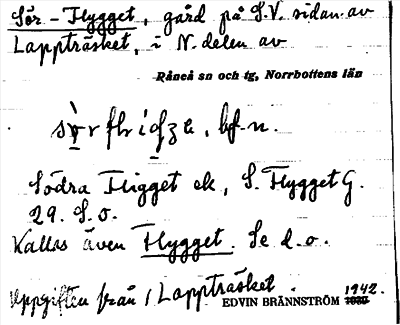 Sör-Flygget, gård på S.V. sidan av
Lappträsket, i N. delen av
Råneå sn och tg, Norrbottens län
bf. n.
Södra Fligget ek, S. Flygget G.
29. S. o.
Kallas även Flygget. Se d. o.
Uppgiften från Lappträsket.
EDVIN BRÄNNSTRÖM 1942.